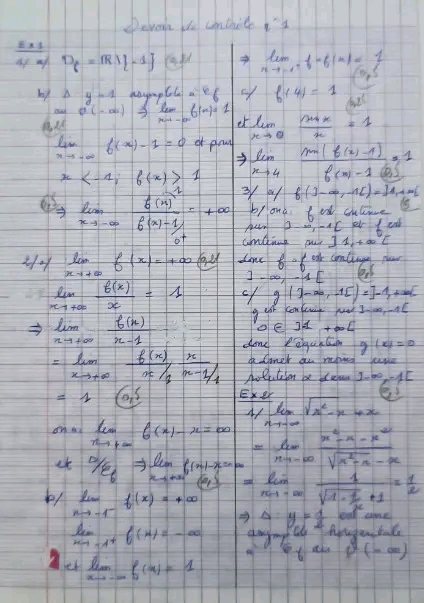 Devoir de contrôle n°1
Ex 1
1/ a/ Df = IR \ {-1}
b/ Δ y=1 asymptote à Cf
au V(-∞) ⇒ lim x→-∞ f(x) = 1
lim x→-∞ f(x) - 1 = 0 et pour
x < -1 ; f(x) > 1
⇒ lim x→-∞ f(x) / f(x)-1 = +∞
2/ a/ lim x→+∞ f(x) = +∞
lim x→+∞ f(x)/x = 1
⇒ lim x→+∞ f(x)/x-1
= lim x→+∞ f(x)/x x/x-1
= 1
on a: lim x→+∞ f(x) - x = ∞
et ⇒ lim x→+∞ f(x) - x = ∞
b/ lim x→-1- f(x) = +∞
lim x→-1+ f(x) = -∞
et lim x→-∞ f(x) = 1
⇒ lim x→-1- f∘f(x) = 1
c/ f(4) = 1
et lim x→0 sin x / x = 1
⇒ lim x→4 sin(f(x)-1) / f(x)-1 = 1
3/ a/ f(]-∞,-1[) = ]1,+∞[
b/ on a: f est continue
sur ]-∞,-1[ et f est
continue sur ]1,+∞[
donc f∘f est continue sur
]-∞,-1[
c/ g(]-∞,-1[) = ]-1,+∞[
g est continue sur ]-∞,-1[
0 ∈ ]-1 +∞[
donc l'équation g(x)=0
admet au moins une
solution α dans ]-∞,-1[
Ex 2
1/ lim x→-∞ √x²-x + x
= lim x→-∞ x²-x-x² / √x²-x - x
= lim x→-∞ 1 / √1-1/x + 1 = 1/2
⇒ Δ: y = 1 est une
asymptote horizontale
à Cf au V(-∞)